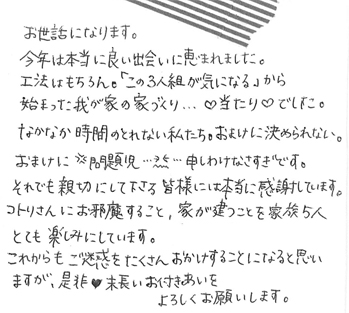 お世話になります。
今年は本当に良い出会いに恵まれました。
工法はもちろん。「この3人組が気になる」から
始まった我が家の家づくり…♡当たり♡でした。
なかなか時間のとれない私たち。おまけに決められない。
おまけに※問題児…然…申しわけなさすぎです。
それでも親切にして下さる皆様には本当に感謝しています。
コトリさんにお邪魔すること，家が建つことを家族5人
とても楽しみにしています。
これからもご迷惑をたくさんおかけすることになると思い
ますが、是非♥末長いお付きあいを
よろしくお願いします。